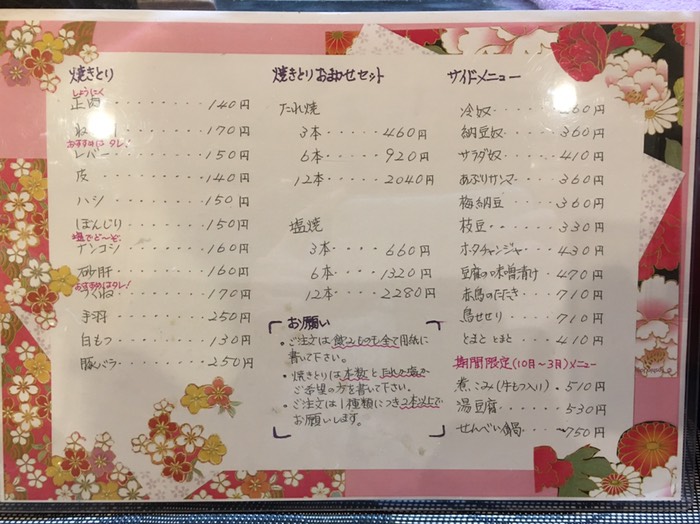 焼きとり
しょうにく
正肉 140円
ねぎ肉 170円
おすすめは タレ!
レバー 150円
皮 140円
ハシ 150円
ぼんじり 150円
塩でど〜ぞ
ゲンコツ 160円
砂肝 160円
おすすめはタレ!
つくね 170円
手羽 250円
白もつ 130円
豚バラ 250円
焼きとりおまかせセット
たれ焼
3本 460円
6本 920円
12本 2040円
塩焼
3本 660円
6本 1320円
12本 2280円
お願い
・ご注文は飲みものも全て用紙に
書いて下さい。
・焼きとりは本数と
ご希望の方を書いて下さい。
・ご注文は1種類につき2本以上で
お願いします。
サイドメニュー
冷奴 60円
納豆奴 360円
サラダ奴 410円
あぶりサンマ 360円
梅納豆 360円
枝豆 330円
ホタテチャンジャ 430円
豆腐の味噌漬け 470円
赤鳥のたたき 710円
鳥せせり 710円
とまと とまと 410円
期間限定(10月〜3月)メニュー
煮こみ(牛もつ入り) 510円
湯豆腐 530円
せんべい鍋 750円